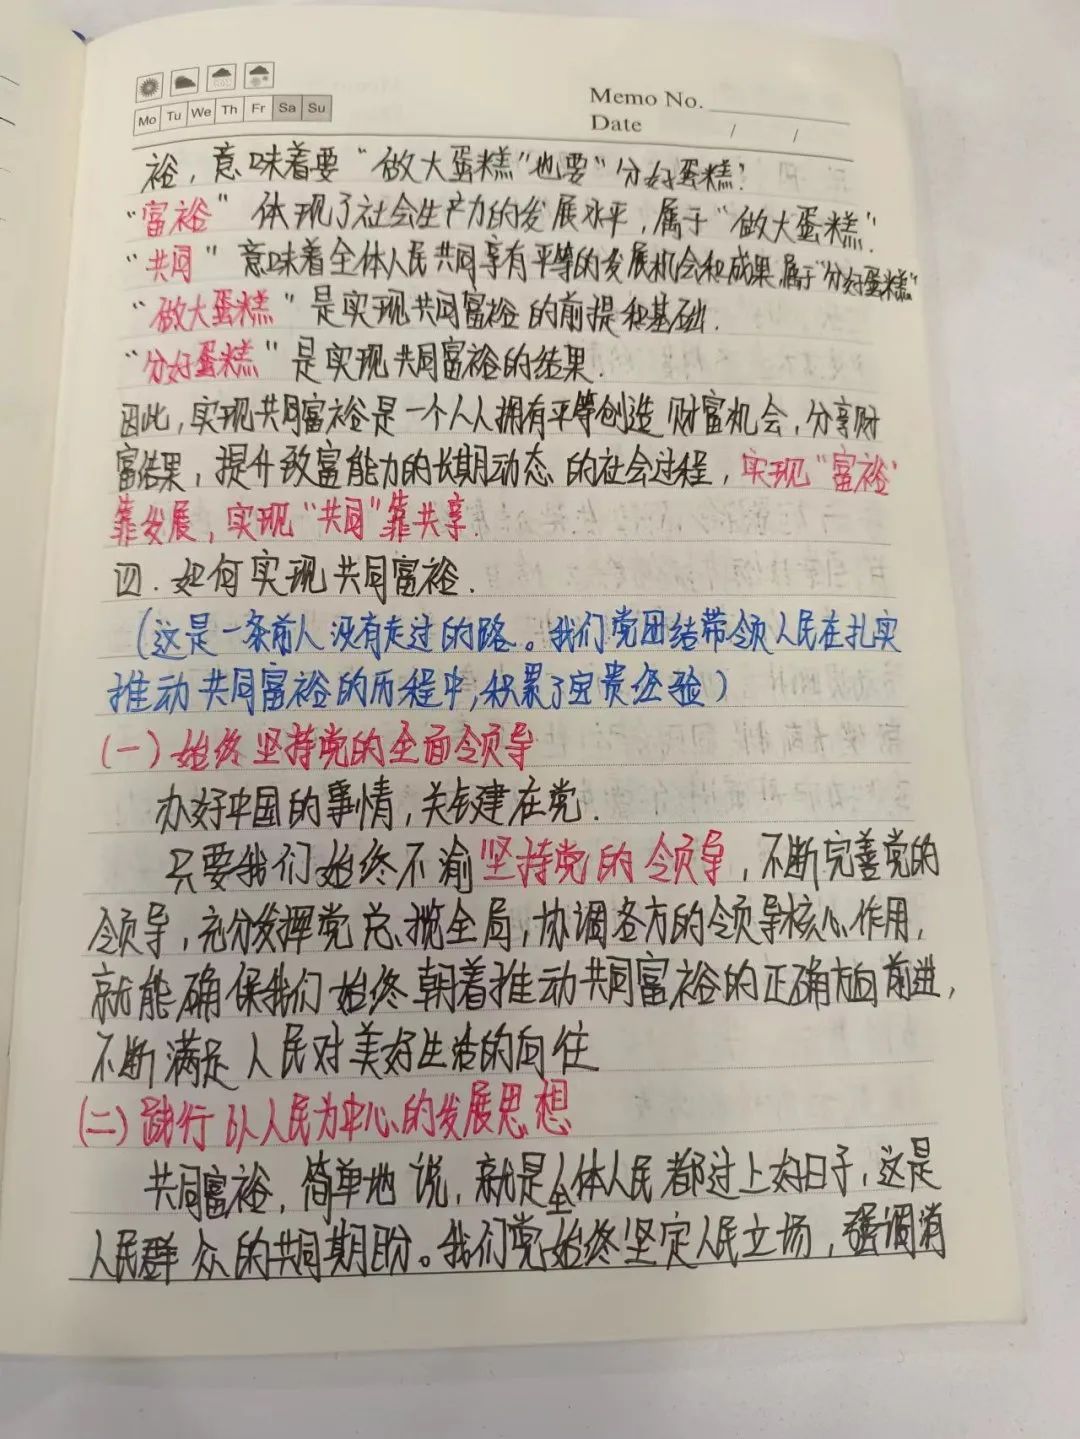 Mo Tu We Th Fr Sa Su
Memo No.
Date / /
裕，意味着要“做大蛋糕”也要“分好蛋糕”
“富裕”体现了社会生产力的发展水平，属于“做大蛋糕”.
“共同”意味着全体人民共同享有平等的发展机会和成果属于“分好蛋糕”
“做大蛋糕”是实现共同富裕的前提和基础.
“分好蛋糕”是实现共同富裕的结果.
因此，实现共同富裕是一个人人拥有平等创造财富机会，分享财
富结果，提升致富能力的长期动态的社会过程，实现“富裕”
靠发展，实现“共同”靠共享.
四.如何实现共同富裕.
（这是一条前人没有走过的路。我们党团结带领人民在扎实
推动共同富裕的历程中，积累了宝贵经验）
（一）始终坚持党的全面领导
办好中国的事情，关键建在党.
只要我们始终不渝坚持党的领导，不断完善党的
领导，充分发挥党总揽全局，协调各方的领导核心作用，
就能确保我们始终朝着推动共同富裕的正确方向前进，
不断满足人民对美好生活的向往
（二）践行以人民为中心的发展思想
共同富裕，简单地说，就是全体人民都过上好日子，这是
人民群众的共同期盼。我们党始终坚定人民立场，强调消